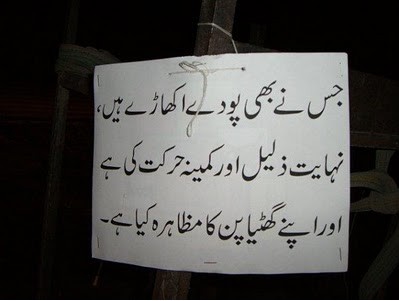 جس نے بھی پودے اکھاڑے ہیں،
نہایت ذلیل اور کمینہ حرکت کی ہے
اور اپنے گھٹیا پن کا مظاہرہ کیا ہے۔